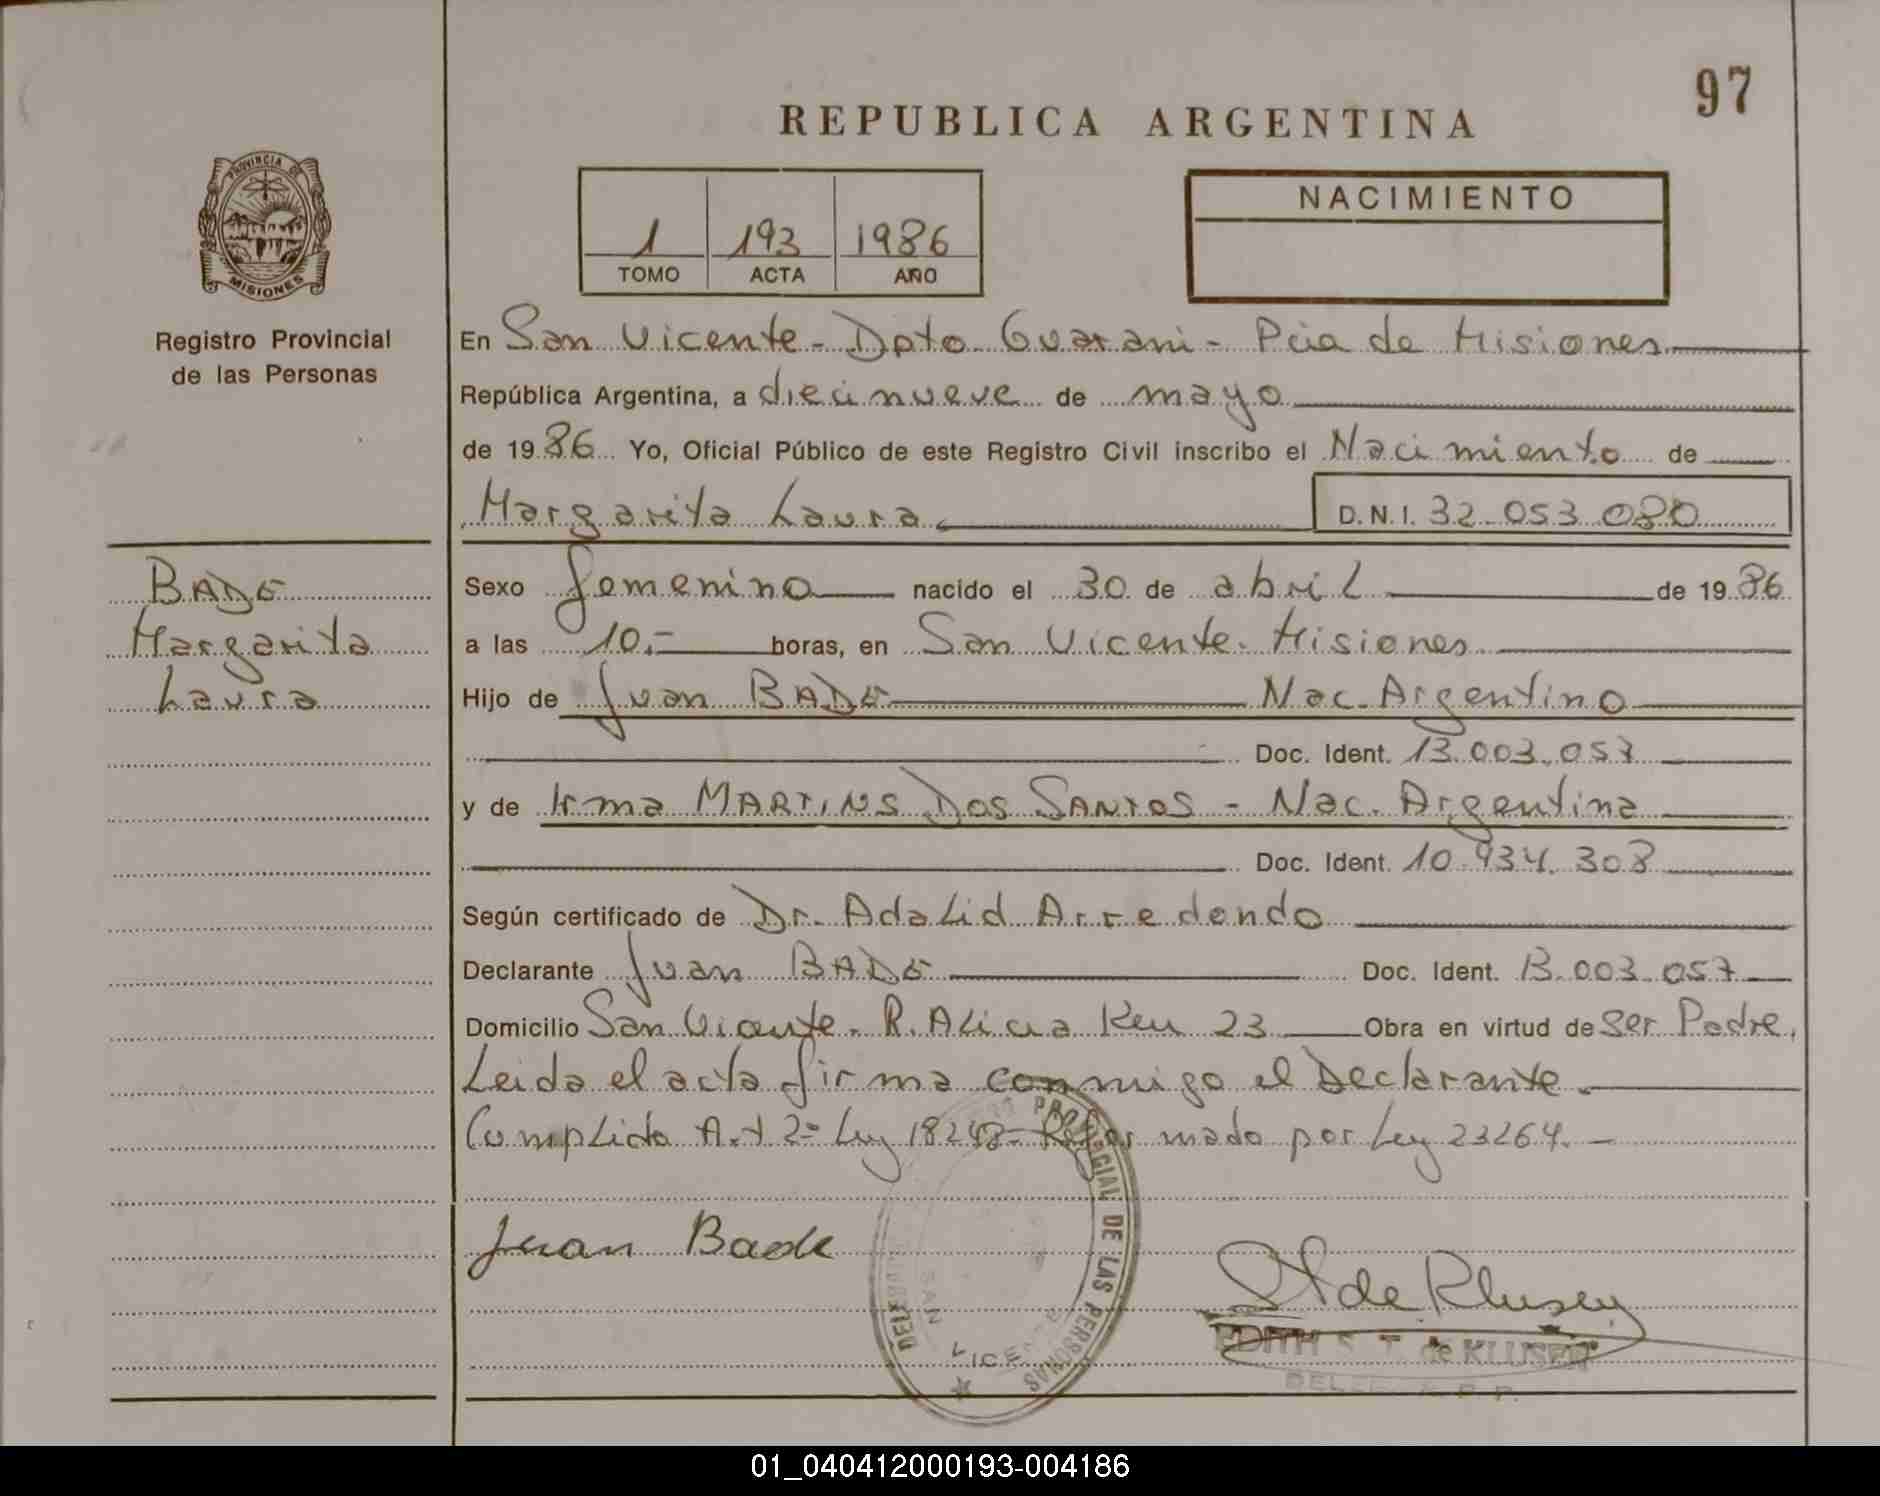 97
REPUBLICA ARGENTINA
PROVINCIA DE
MISIONES
Registro Provincial
de las Personas
1 193 1986
TOMO ACTA AÑO
NACIMIENTO
En San Vicente - Dpto Guarani - Pcia de Misiones
República Argentina, a diecinueve de mayo
de 1986 Yo, Oficial Público de este Registro Civil inscribo el Nacimiento de
Margarita Laura
D.N.I. 32.053.080
BADE
Margarita
Laura
Sexo femenino nacido el 30 de abril de 1986
a las 10.- horas, en San Vicente - Misiones
Hijo de Juan BADE Nac. Argentino
Doc. Ident. 13.003.057
y de Irma MARTINS DOS SANTOS - Nac. Argentina
Doc. Ident. 10.934.308
Según certificado de Dr. Adalid Arredondo
Declarante Juan BADE Doc. Ident. 13.003.057
Domicilio San Vicente - R. Alicia Km 23 Obra en virtud de ser Padre,
Leida el acta firma conmigo el Declarante.
Cumplido Art 2º Ley 18248 - Reformado por Ley 23264. -
Juan Bade
PROVINCIAL DE LAS PERSONAS
SAN VICENTE
de Klusen
EDITH S. T. de KLUSEN
01_040412000193-004186